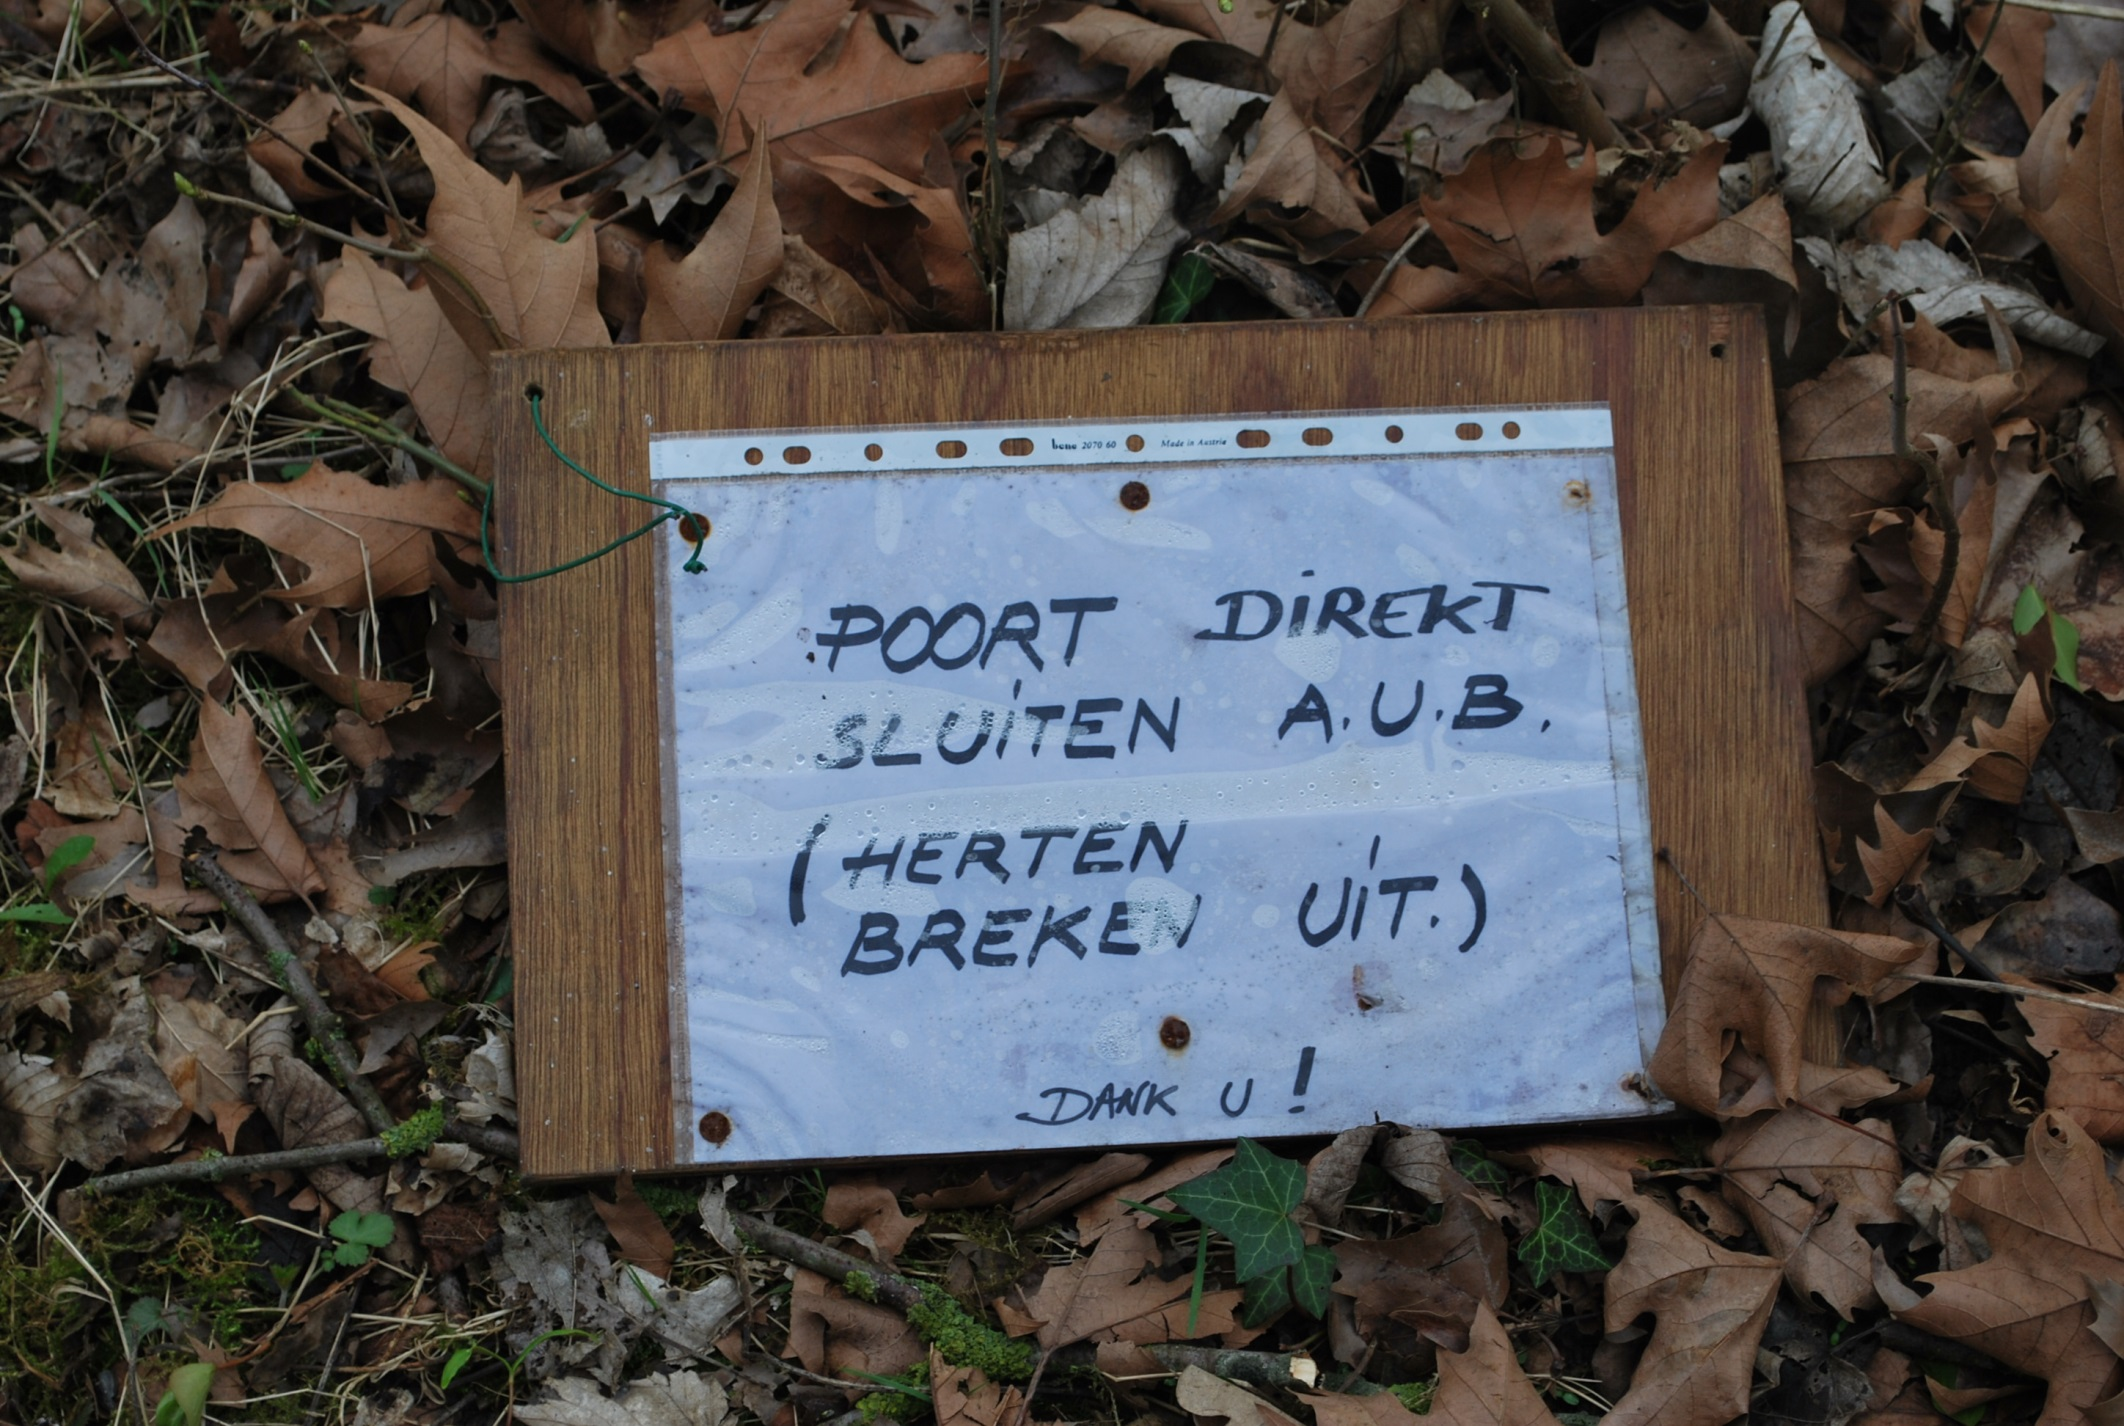 bene 2070 60 Made in Austria
POORT DIREKT
SLUITEN A.U.B.
(HERTEN
BREKEN UIT.)
DANK U!